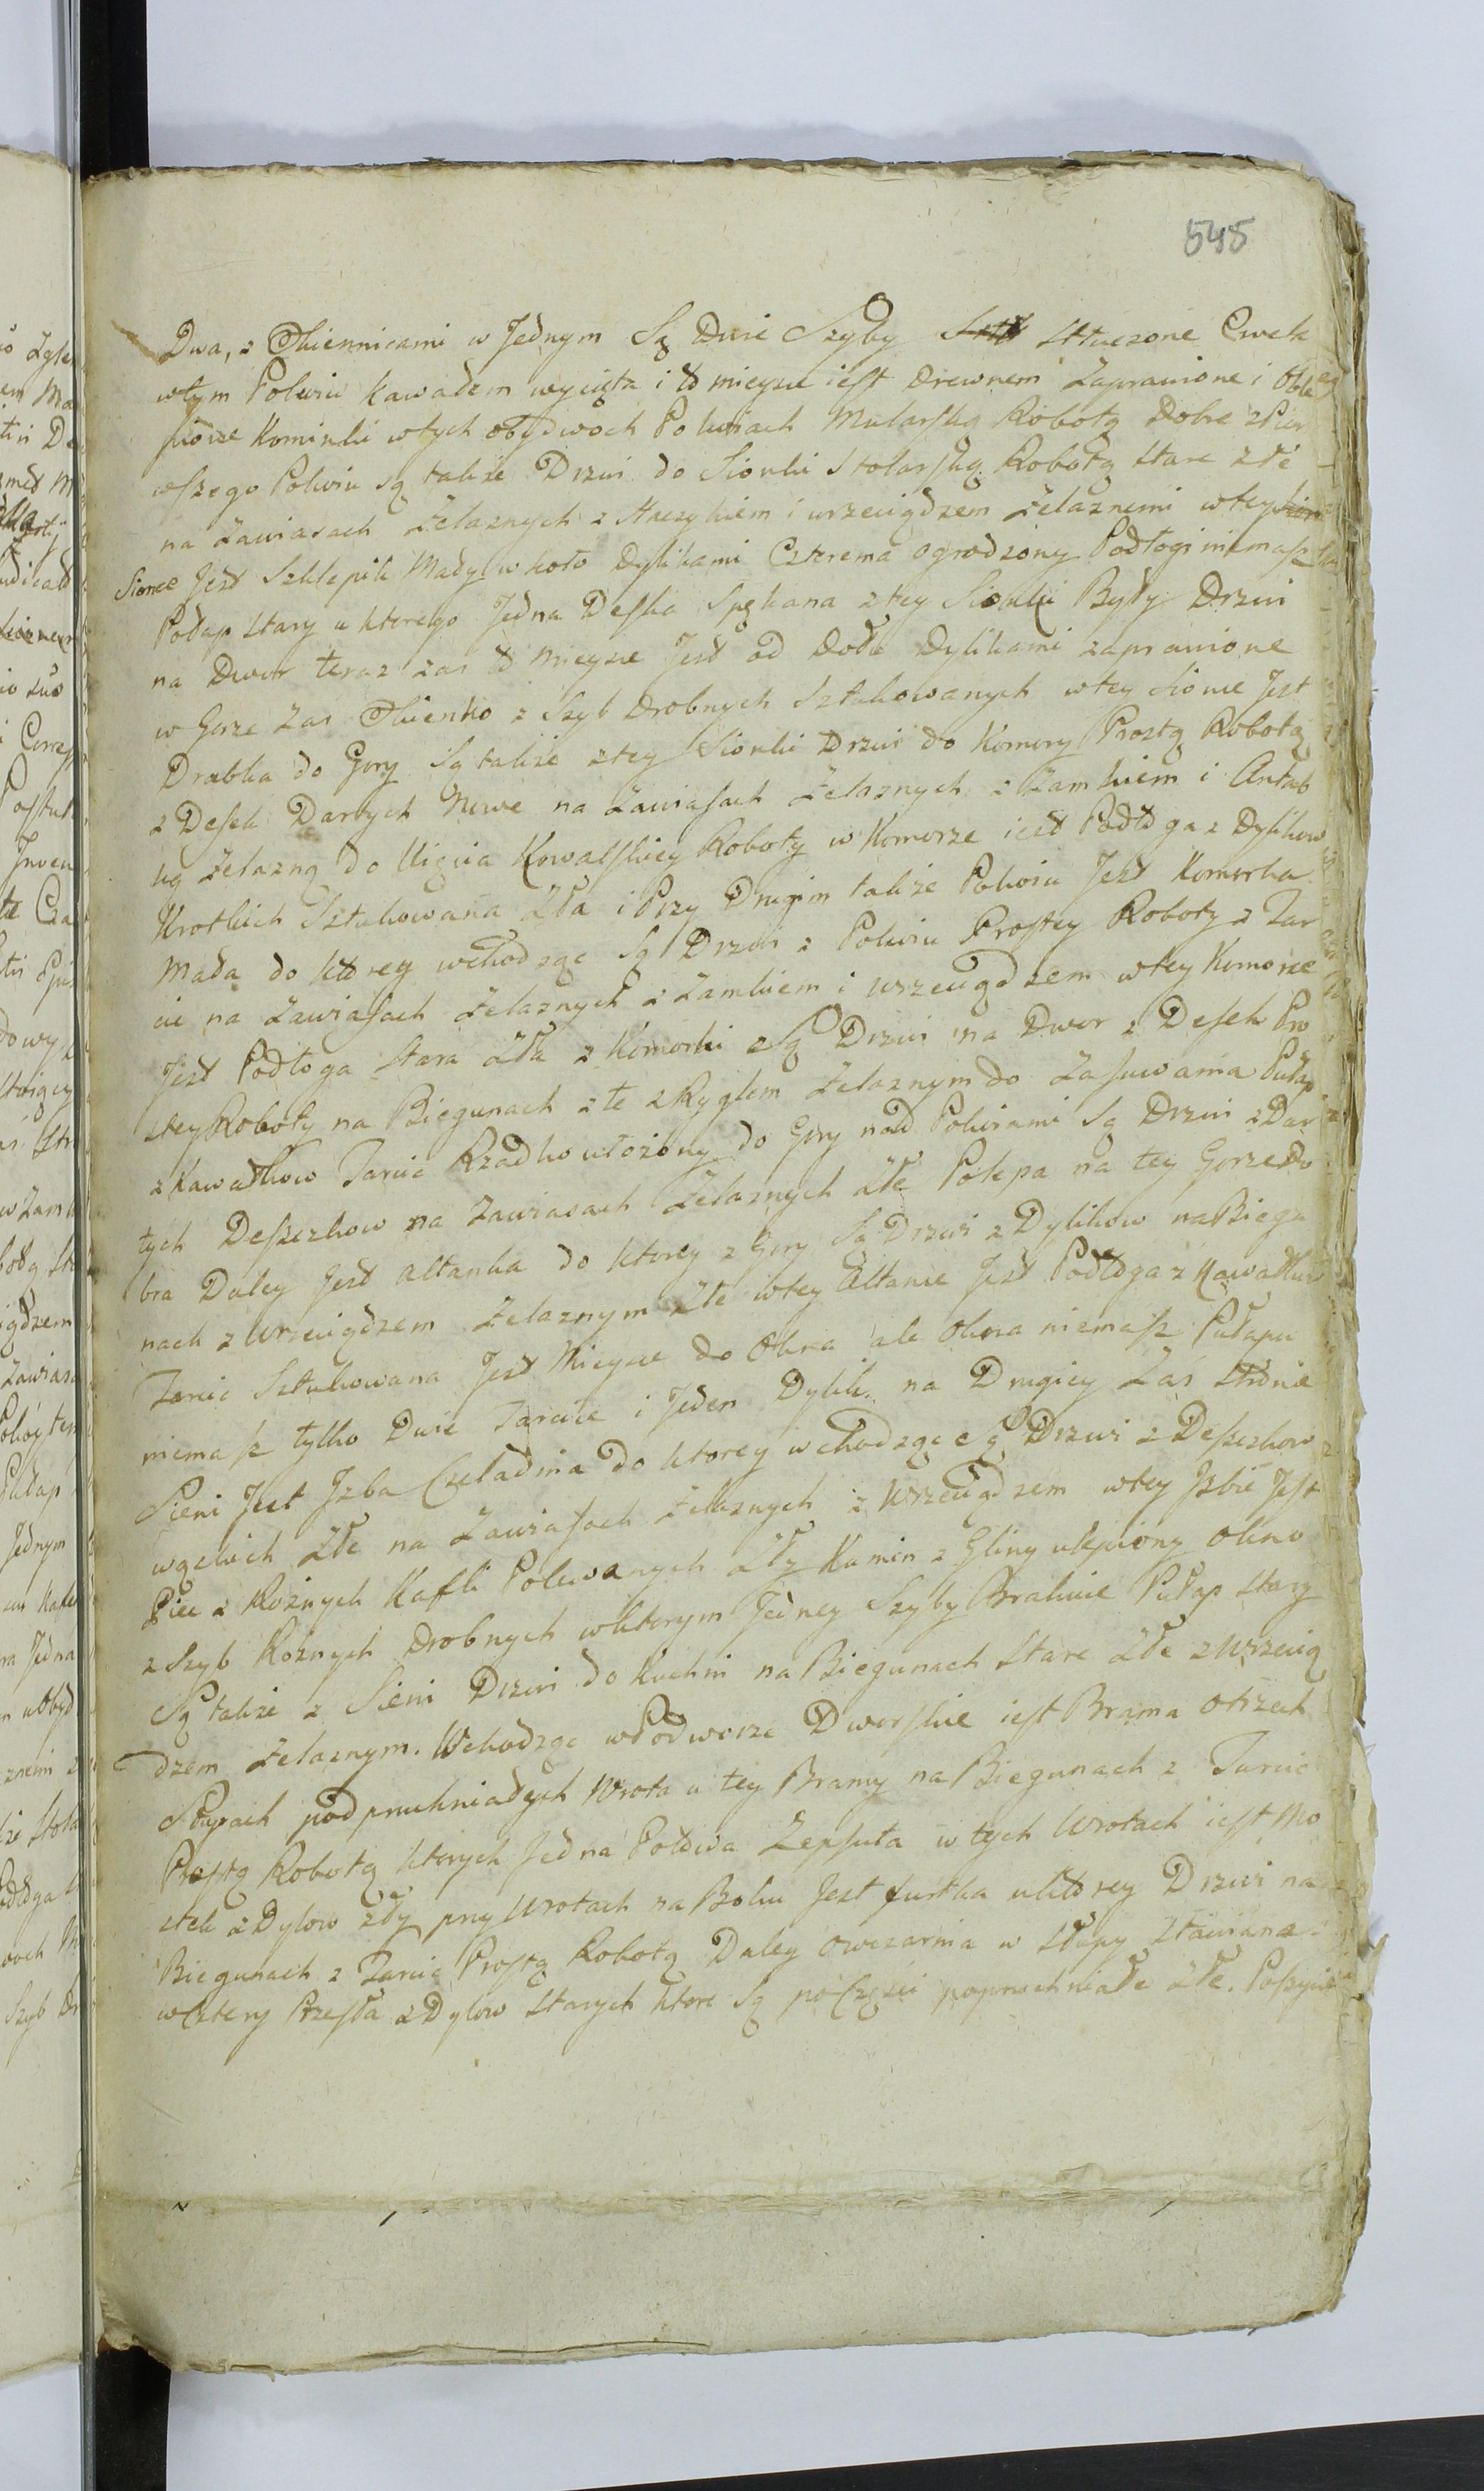 548
Dwa, z Okiennicami w Jednym Są Dwie Szyby Stłuczone Cwek
wtym Pokoiu kawałem wycięta i to mieysce iest Drewnem Zaprawione i Oble
pione Kominki wtych obydwoch Pokoiach Mularską Robotą Dobre z Pier
wszego Pokoiu są także Drzwi do Sionki Stolarską Robotą Stare złe
na Zawiasach Żelaznych z Haczykiem i wrzeciądzem Żelaznemi wtey
Sionce Jest Szklepik Mały w koło Dylikami Czterema ogrodzony Podłogi niemasz
Połap Stary u ktorego Jedna Deska Spękana z tey Sionki Były Drzwi
na Dwor teraz zas to Mieysce Jest od Dołu Dylikami zaprawione
w Gorze zas Okienko z Szyb Drobnych Sztukowanych wtey Sionce Jest
Drabka do Gory Są także z tey Sionki Drzwi do Komory Prostą Robotą
z Desek Dartych Nowe na Zawiasach Żelaznych z Zamkiem i Antab
ką Żelazną do Uięcia Kowalskiey Roboty w Komorze iest Podłoga z Dylikow
Krotkich Sztukowana Zła i Przy Drugim także Pokoiu Jest Komorka
Mała do ktorey wchodząc Są Drzwi z Pokoiu Prostey Roboty z Tar
cic na Zawiasach Żelaznych z Zamkiem i wrzeciądzem wtey Komorce
Jest Podłoga Stara Zła z Komorki Są Drzwi na Dwor z Desek Pro
stey Roboty na Biegunach złe z Ryglem Żelaznym do Zasuwania Pułap
z kawałkow Tarcic Rzadko ułożony do Gory nad Pokoiami Są Drzwi z Dar
tych Deszczkow na Zawiasach Żelaznych Złe Polepa na tey Gorze Do
bra Daley Jest Altanka do ktorey z Gory Są Drzwi z Dylikow na Biegu
nach z wrzeciądzem Żelaznym Złe wtey Altanie Jest Podłoga z Kawałkow
Tarcic Sztukowana Jest Mieysce do Okna ale Okna niemasz Pułapu
niemasz tylko Dwie Tarcice i Jeden Dylik. na Drugiey Zaś Stronie
Sieni Jest Izba Czeladnia do ktorey wchodząc Są Drzwi z Deszczkow
wązkich Złe na Zawiasach Żelaznych z Wrzeciądzem wtey Izbie Jest
Piec z Rożnych Kafli Polewanych Zły Kumin z Gliny ulepiony Okno
z Szyb Rożnych Drobnych wktorym Jedney Szyby Brakuie Pułap Stary
Są także z Sieni Drzwi do Kuchni na Biegunach Stare Złe z Wrzecią
dzem Żelaznym. Wchodząc w Podworze Dworskie iest Brama otrzech
Słupach podpruchniałych Wrota u tey Bramy na Biegunach z Tarcic
Prostą Robotą ktorych Jedna Połowa Zepsuta w tych Wrotach iest Mo
stek z Dylow zły przy Wrotach na Boku Jest furtka uktorey Drzwi na
Biegunach z Tarcic Prostą Robotą Daley Owczarnia w Słupy Stawiana
wCztery Przęsła z Dylow Starych ktore Są po Części poprochniałe Złe. Poszycie